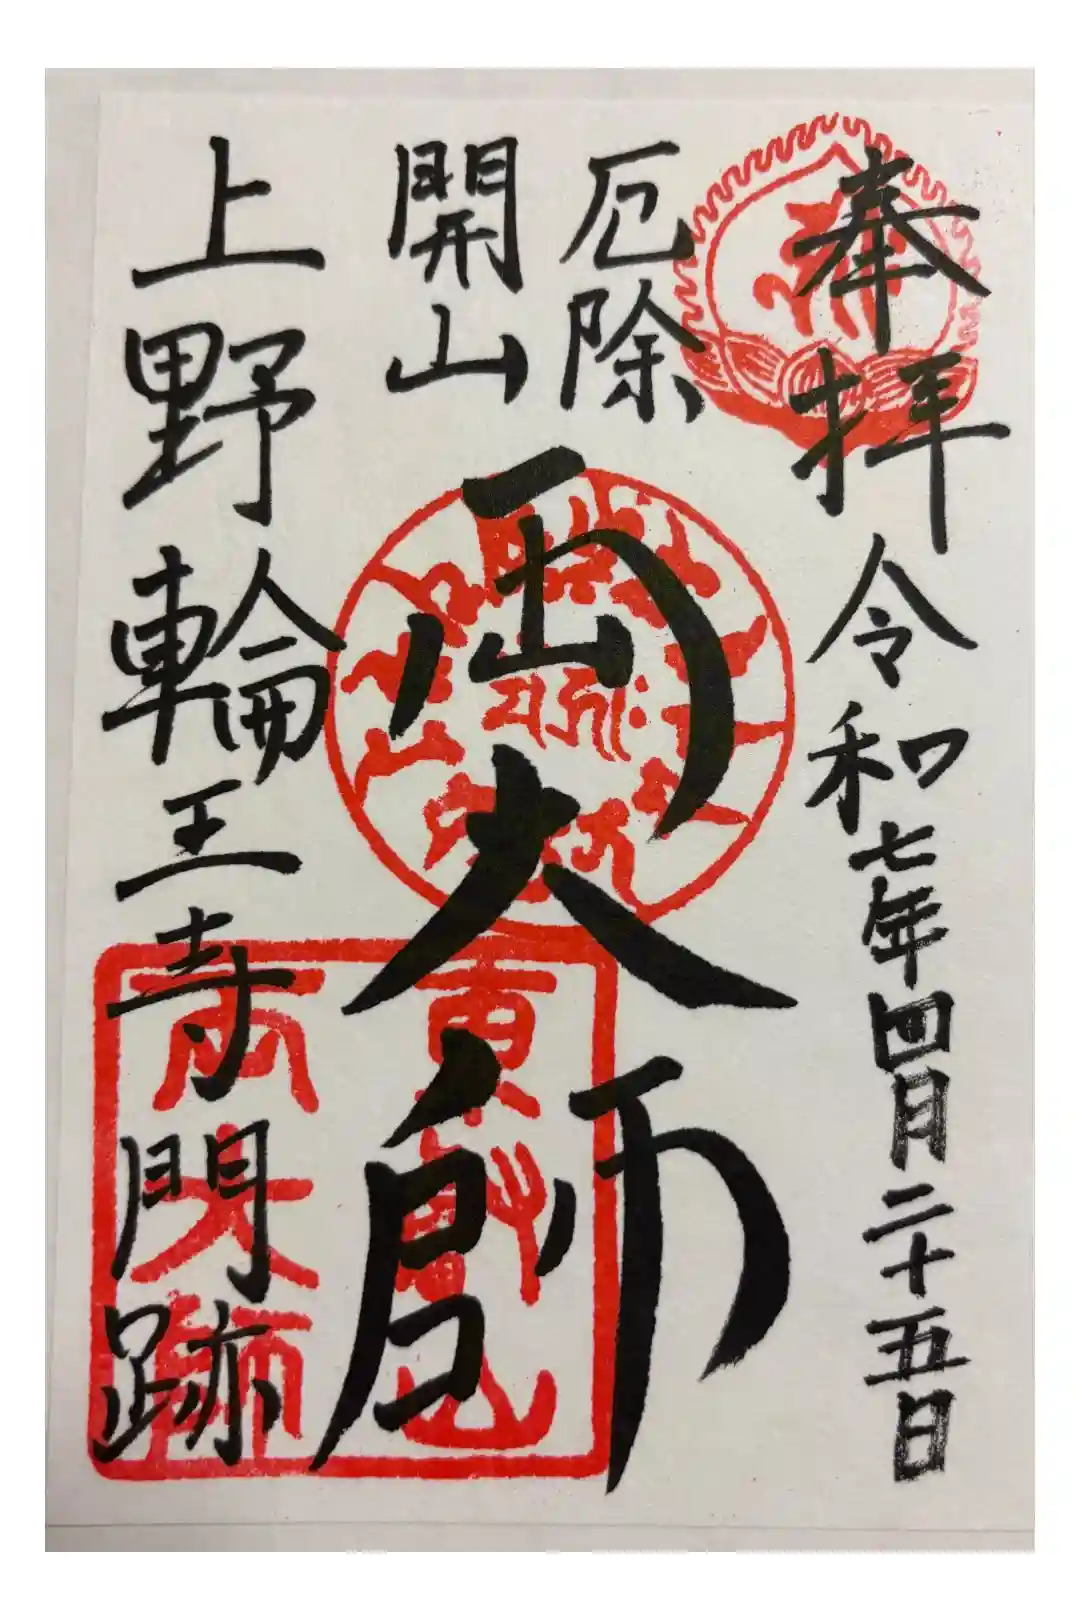 奉拝
令和七年四月二十五日
厄除
開山
両大師
上野輪王寺門跡
東叡山
両大師